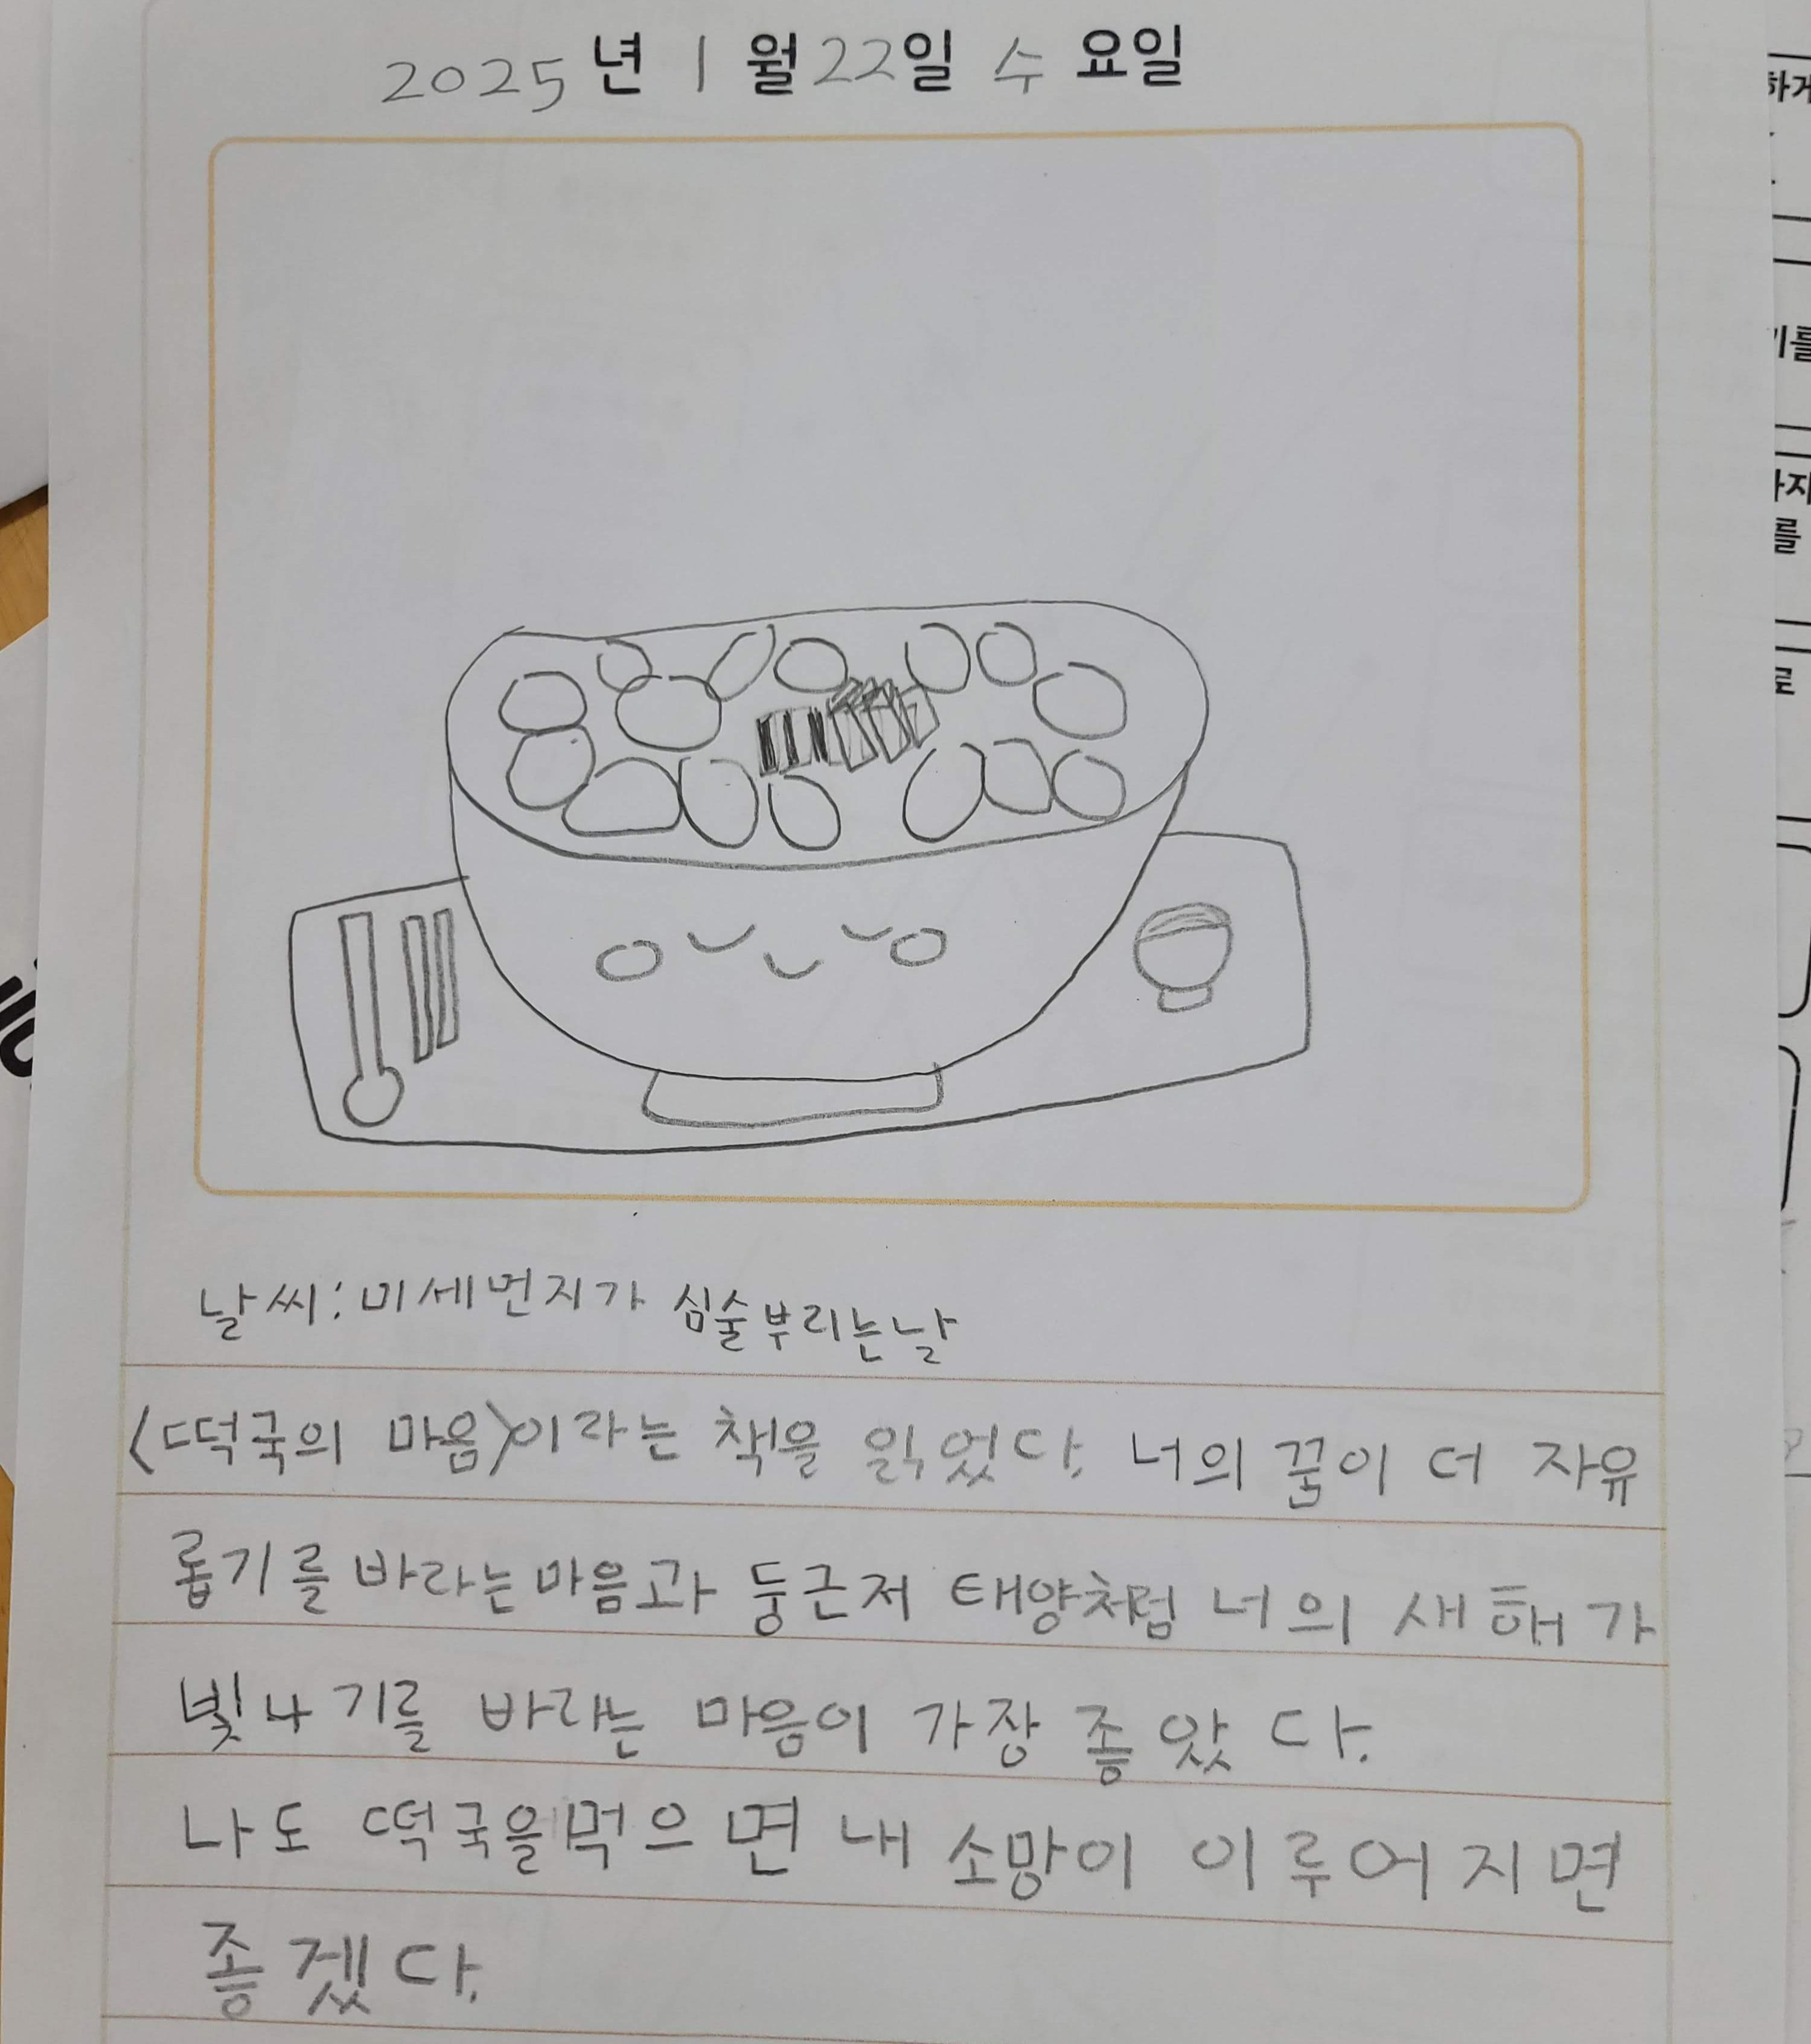 2025년 1월 22일 수요일
날씨: 미세먼지가 심술부리는날
<떡국의 마음>이라는 책을 읽었다. 너의 꿈이 더 자유
롭기를 바라는마음과 둥근저 태양처럼 너의 새해가
빛나기를 바라는 마음이 가장 좋았다.
나도 떡국을 먹으면 내 소망이 이루어지면
좋겠다.
하게
기를
를
로